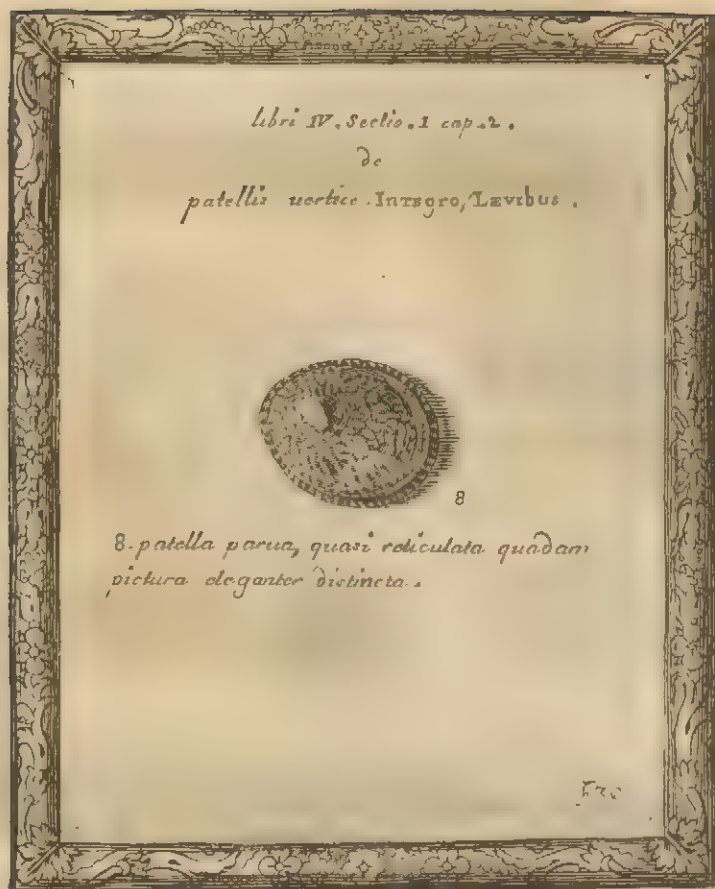 libri IV. Sectio. 1 cap. 2.
de
patellis vertice. Integro, Lævibus.
8
8. patella parua, quasi reticulata quadam
pictura eleganter distincta.